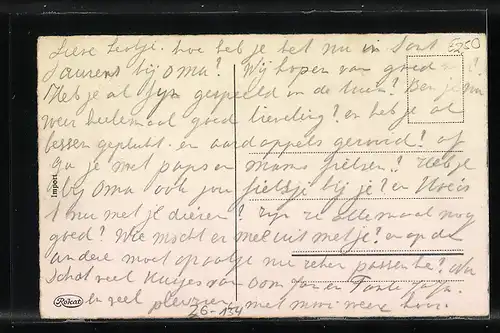 Lieve Lootje. hoe heb je het nu in Sant
6250
Laurens bij oma? Wij hopen van goed !
Heb je al fijn gespeeld in de tuin? Ben je nu
weer heelemaal goed lieveling? en heb je al
bessen geplukt en aardappels gerooid! of
ga je met papa en mama fietsen!! Heb je
bij oma ook jou fietsje bij je? en Hoe is
't nu met je dieren? zijn ze allemaal nog
goed? Wie mocht er mee uit met je? en op de
andere moet opaatje nu zeker passen he? Nu
Schat veel kusjes van oom Jan en Tante
en veel plezier met mooi weer hoor.
26-1-54
Import
Rokat